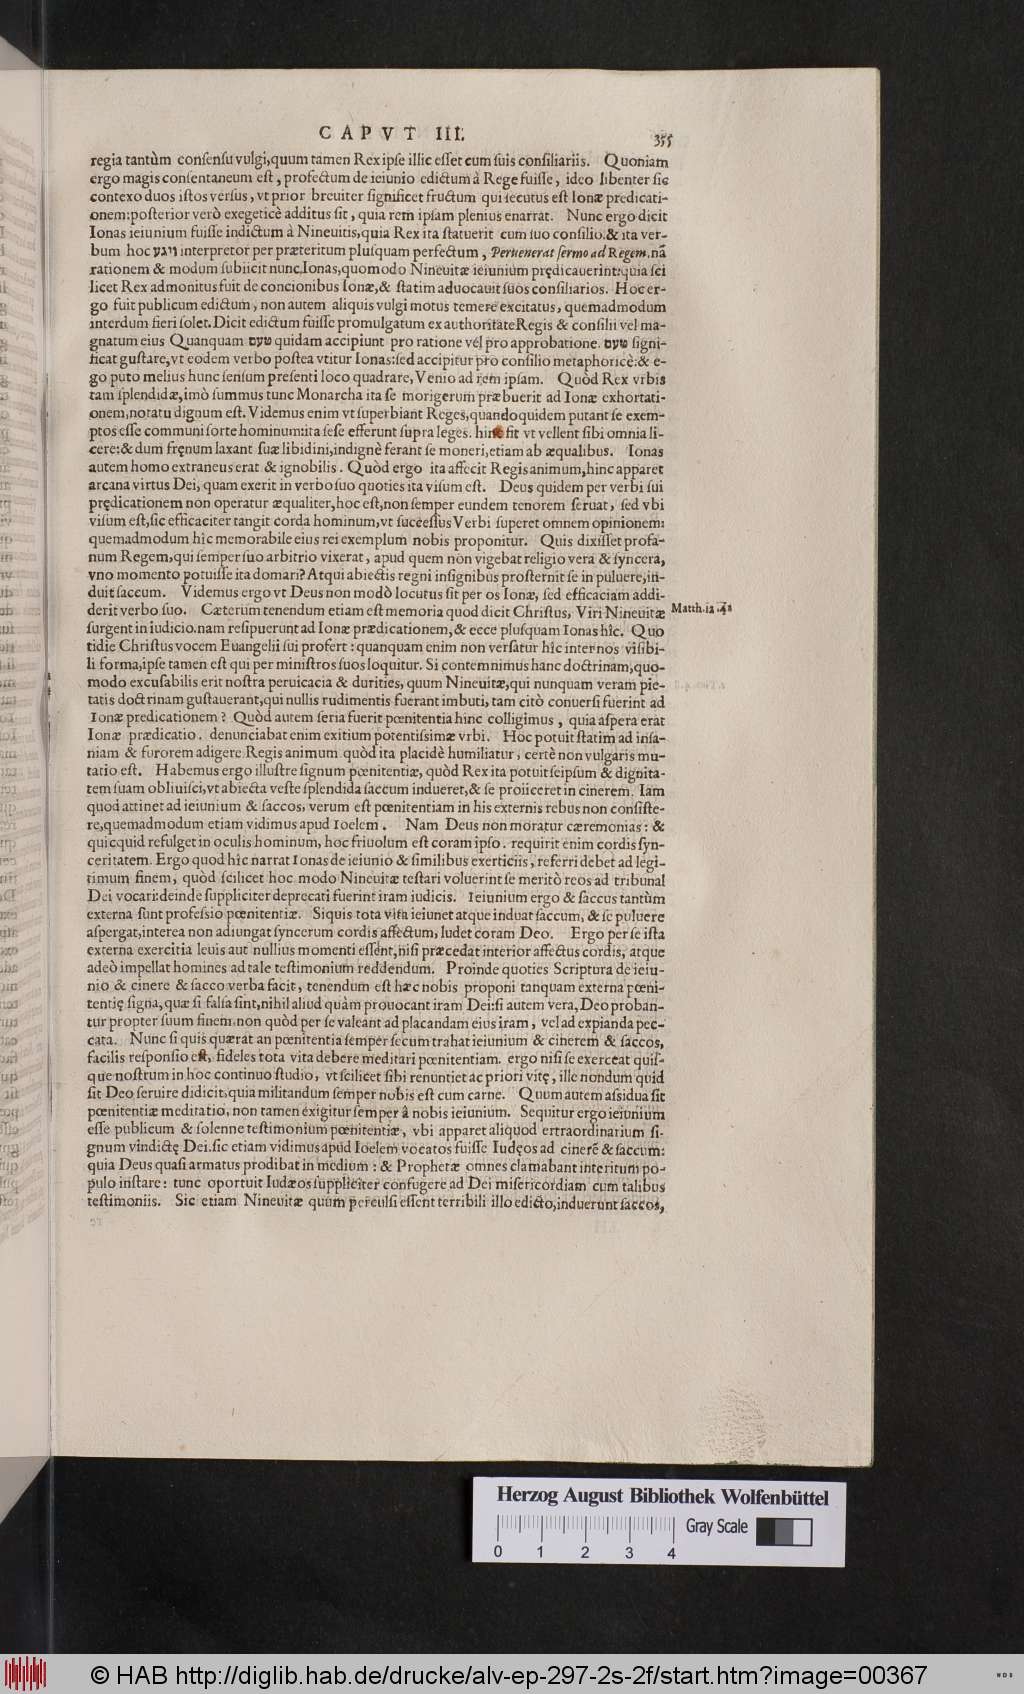 CAPVT III.
355
regia tantùm conſenſu vulgi,quum tamen Rex ipſe illic eſſet cum ſuis conſiliariis. Quoniam
ergo magis conſentaneum eſt, profectum de ieiunio edictum à Rege fuiſſe, ideo libenter ſic
contexo duos iſtos verſus, vt prior breuiter ſignificet fructum qui ſecutus eſt Ionæ predicati-
onem:poſterior verò exegeticè additus ſit, quia rem ipſam plenius enarrat. Nunc ergo dicit
Ionas ieiunium fuiſſe indictum à Nineuitis,quia Rex ita ſtatuerit cum ſuo conſilio.& ita ver-
bum hoc ויגע interpretor per præteritum pluſquam perfectum, Peruenerat ſermo ad Regem.nã
rationem & modum ſubiicit nunc Ionas,quomodo Nineuitæ ieiunium prędicauerint:quia ſci
licet Rex admonitus fuit de concionibus Ionæ,& ſtatim aduocauit ſuos conſiliarios. Hoc er-
go fuit publicum edictum, non autem aliquis vulgi motus temere excitatus, quemadmodum
interdum fieri ſolet. Dicit edictum fuiſſe promulgatum ex authoritate Regis & conſilii vel ma-
gnatum eius Quanquam טעם quidam accipiunt pro ratione vel pro approbatione. טעם ſigni-
ficat guſtare,vt eodem verbo poſtea vtitur Ionas:ſed accipitur pro conſilio metaphoricè:& e-
go puto melius hunc ſenſum preſenti loco quadrare, Venio ad rem ipſam. Quòd Rex vrbis
tam ſplendidæ,imò ſummus tunc Monarcha ita ſe morigerum præbuerit ad Ionæ exhortati-
onem,notatu dignum eſt. Videmus enim vt ſuperbiant Reges,quandoquidem putant ſe exem-
ptos eſſe communi ſorte hominum:ita ſeſe efferunt ſupra leges. hinc fit vt vellent ſibi omnia li-
cere:& dum fręnum laxant ſuæ libidini,indignè ferant ſe moneri,etiam ab æqualibus. Ionas
autem homo extraneus erat & ignobilis. Quòd ergo ita affecit Regis animum,hinc apparet
arcana virtus Dei, quam exerit in verbo ſuo quoties ita viſum eſt. Deus quidem per verbi ſui
prędicationem non operatur æqualiter,hoc eſt,non ſemper eundem tenorem ſeruat, ſed vbi
viſum eſt,ſic efficaciter tangit corda hominum,vt ſucceſſus Verbi ſuperet omnem opinionem:
quemadmodum hîc memorabile eius rei exemplum nobis proponitur. Quis dixiſſet profa-
num Regem,qui ſemper ſuo arbitrio vixerat, apud quem non vigebat religio vera & ſyncera,
vno momento potuiſſe ita domari? Atqui abiectis regni inſignibus proſternit ſe in puluere,in-
duit ſaccum. Videmus ergo vt Deus non modò locutus ſit per os Ionæ, ſed efficaciam addi-
derit verbo ſuo. Cæterùm tenendum etiam eſt memoria quod dicit Chriſtus, Viri Nineuitæ
Matth.12.41
ſurgent in iudicio.nam reſipuerunt ad Ionæ prædicationem,& ecce pluſquam Ionas hîc. Quo
tidie Chriſtus vocem Euangelii ſui profert: quanquam enim non verſatur hîc inter nos viſibi-
li forma,ipſe tamen eſt qui per miniſtros ſuos loquitur. Si contemnimus hanc doctrinam,quo-
modo excuſabilis erit noſtra peruicacia & durities, quum Nineuitæ,qui nunquam veram pie-
tatis doctrinam guſtauerant,qui nullis rudimentis fuerant imbuti, tam citò conuerſi fuerint ad
Ionæ predicationem? Quòd autem ſeria fuerit pœnitentia hinc colligimus, quia aſpera erat
Ionæ prædicatio. denunciabat enim exitium potentiſsimæ vrbi. Hoc potuit ſtatim ad inſa-
niam & furorem adigere Regis animum quòd ita placidè humiliatur, certè non vulgaris mu-
tatio eſt. Habemus ergo illuſtre ſignum pœnitentiæ, quòd Rex ita potuit ſeipſum & dignita-
tem ſuam obliuiſci,vt abiecta veſte ſplendida ſaccum indueret,& ſe proiiceret in cinerem. Iam
quod attinet ad ieiunium & ſaccos, verum eſt pœnitentiam in his externis rebus non conſiſte-
re,quemadmodum etiam vidimus apud Ioelem. Nam Deus non moratur cæremonias: &
quicquid refulget in oculis hominum, hoc friuolum eſt coram ipſo. requirit enim cordis ſyn-
ceritatem. Ergo quod hîc narrat Ionas de ieiunio & ſimilibus exerticiis, referri debet ad legi-
timum finem, quòd ſcilicet hoc modo Nineuitæ teſtari voluerint ſe meritò reos ad tribunal
Dei vocari:deinde ſuppliciter deprecati fuerint iram iudicis. Ieiunium ergo & ſaccus tantùm
externa ſunt profeſsio pœnitentiæ. Siquis tota vita ieiunet atque induat ſaccum, & ſe puluere
aſpergat,interea non adiungat ſyncerum cordis affectum, ludet coram Deo. Ergo per ſe iſta
externa exercitia leuis aut nullius momenti eſſent,niſi præcedat interior affectus cordis, atque
adeò impellat homines ad tale teſtimonium reddendum. Proinde quoties Scriptura de ieiu-
nio & cinere & ſacco verba facit, tenendum eſt hæc nobis proponi tanquam externa pœni-
tentię ſigna,quæ ſi falſa ſint,nihil aliud quàm prouocant iram Dei:ſi autem vera, Deo proban-
tur propter ſuum finem.non quòd per ſe valeant ad placandam eius iram, vel ad expianda pec-
cata. Nunc ſi quis quærat an pœnitentia ſemper ſecum trahat ieiunium & cinerem & ſaccos,
facilis reſponſio eſt, fideles tota vita debere meditari pœnitentiam. ergo niſi ſe exerceat quiſ-
que noſtrum in hoc continuo ſtudio, vt ſcilicet ſibi renuntiet ac priori vitę, ille nondum quid
ſit Deo ſeruire didicit,quia militandum ſemper nobis eſt cum carne. Quum autem aſsidua ſit
pœnitentiæ meditatio, non tamen exigitur ſemper à nobis ieiunium. Sequitur ergo ieiunium
eſſe publicum & ſolenne teſtimonium pœnitentiæ, vbi apparet aliquod ertraordinarium ſi-
gnum vindictę Dei.ſic etiam vidimus apud Ioelem vocatos fuiſſe Iudęos ad cinerẽ & ſaccum:
quia Deus quaſi armatus prodibat in medium: & Prophetæ omnes clamabant interitum po-
pulo inſtare: tunc oportuit Iudæos ſuppliciter confugere ad Dei miſericordiam cum talibus
teſtimoniis. Sic etiam Nineuitæ quum perculſi eſſent terribili illo edicto,induerunt ſaccos,
Herzog August Bibliothek Wolfenbüttel
Gray Scale
0 1 2 3 4
© HAB http://diglib.hab.de/drucke/alv-ep-297-2s-2f/start.htm?image=00367